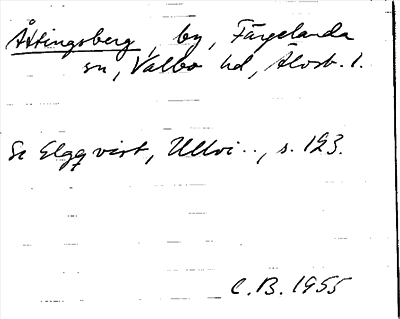 Åttingsberg, by, Färgelanda
sn, Valbo hd, Älvsb. l.
Se Elgqvist, Ullvi.., s. 123.
C.B. 1955